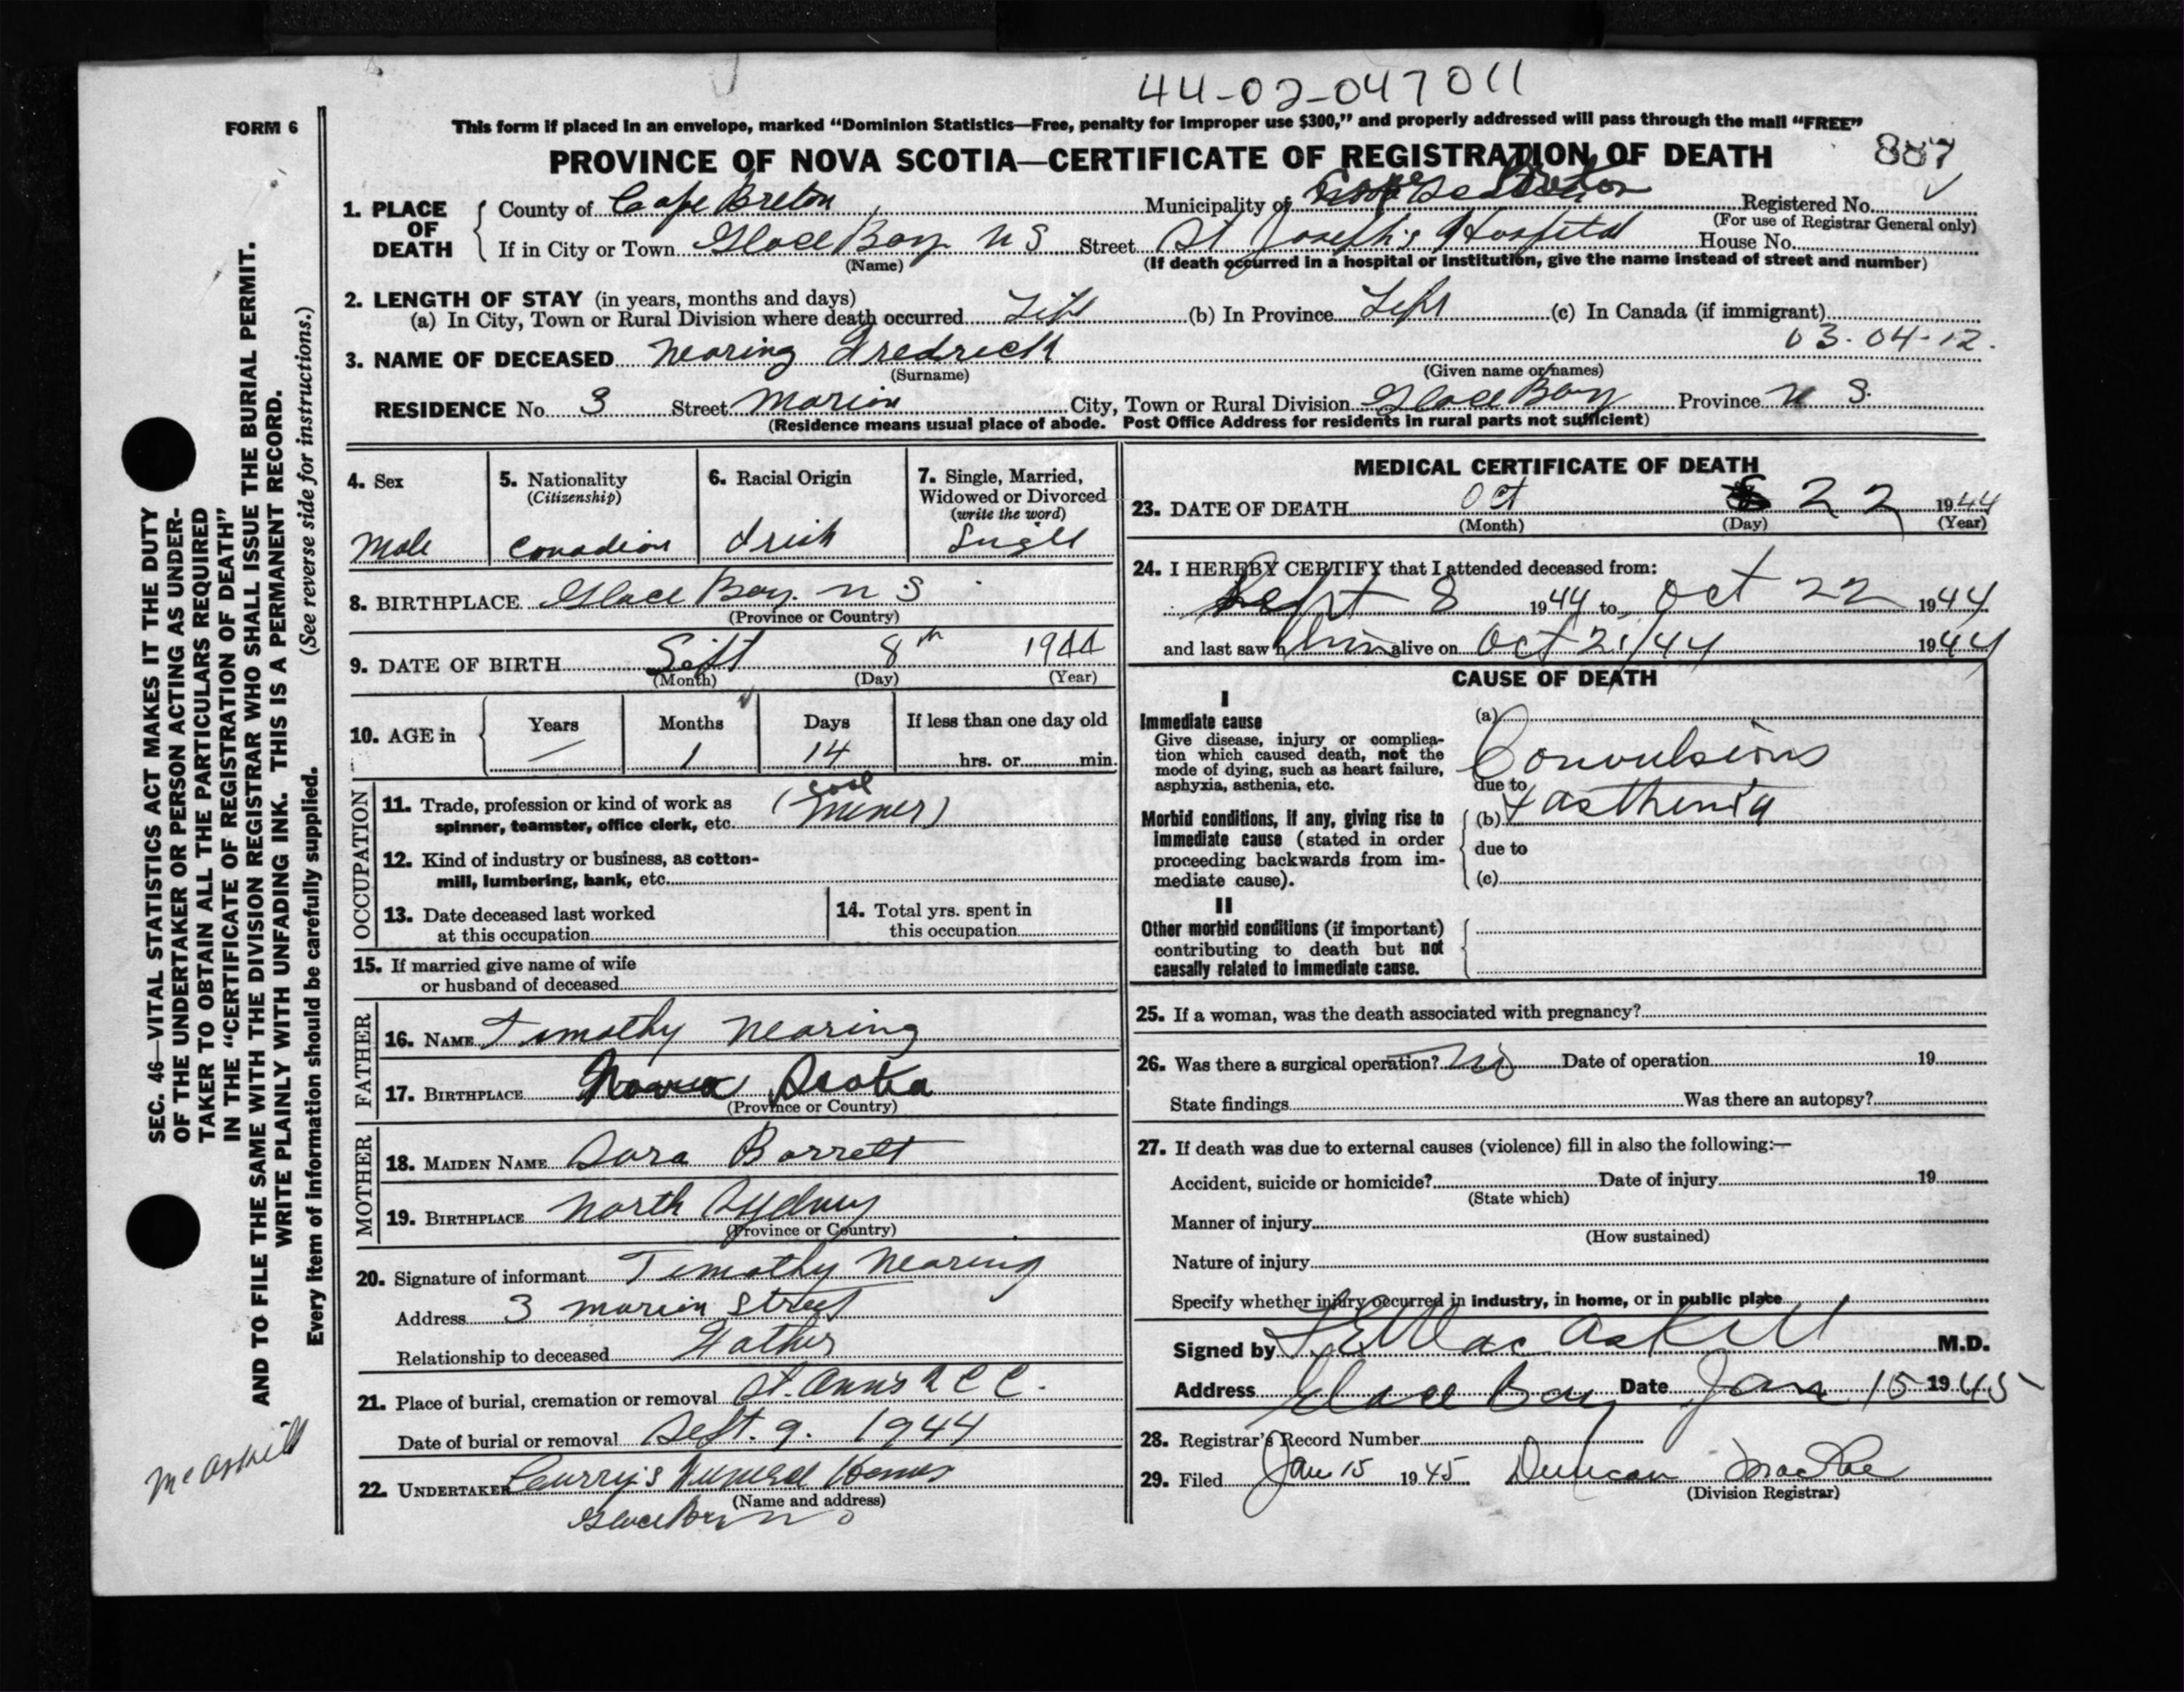 44-02-047011
FORM 6
This form if placed in an envelope, marked "Dominion Statistics—Free, penalty for improper use $300," and properly addressed will pass through the mail "FREE"
PROVINCE OF NOVA SCOTIA—CERTIFICATE OF REGISTRATION OF DEATH 887
1. PLACE OF DEATH
County of Cape Breton Municipality of Cape Breton Registered No.
(For use of Registrar General only)
If in City or Town Glace Bay N S Street St Joseph's Hospital House No.
(Name) (If death occurred in a hospital or institution, give the name instead of street and number)
2. LENGTH OF STAY (in years, months and days)
(a) In City, Town or Rural Division where death occurred Life (b) In Province Life (c) In Canada (if immigrant)
03-04-12.
3. NAME OF DECEASED Nearing Fredrick
(Surname) (Given name or names)
RESIDENCE No. 3 Street Marion City, Town or Rural Division Glace Bay Province N S.
(Residence means usual place of abode. Post Office Address for residents in rural parts not sufficient)
4. Sex
Male
5. Nationality
(Citizenship)
Canadian
6. Racial Origin
Irish
7. Single, Married,
Widowed or Divorced
(write the word)
Single
8. BIRTHPLACE Glace Bay. N S
(Province or Country)
9. DATE OF BIRTH Sept 8th 1944
(Month) (Day) (Year)
10. AGE in
Years Months Days If less than one day old
— 1 14 hrs. or min.
OCCUPATION
11. Trade, profession or kind of work as
spinner, teamster, office clerk, etc. (coal miner)
12. Kind of industry or business, as cotton-
mill, lumbering, bank, etc.
13. Date deceased last worked
at this occupation
14. Total yrs. spent in
this occupation
15. If married give name of wife
or husband of deceased
FATHER
16. NAME Timothy Nearing
17. BIRTHPLACE Nova Scotia
(Province or Country)
MOTHER
18. MAIDEN NAME Sara Barrett
19. BIRTHPLACE North Sydney
(Province or Country)
20. Signature of informant Timothy Nearing
Address 3 Marion Street
Relationship to deceased Father
21. Place of burial, cremation or removal St. Ann's R C C.
Date of burial or removal Sept. 9. 1944
22. UNDERTAKER Curry's Funeral Home
(Name and address)
Glace Bay N S
MEDICAL CERTIFICATE OF DEATH
23. DATE OF DEATH Oct 22 1944
(Month) (Day) (Year)
24. I HEREBY CERTIFY that I attended deceased from:
Sept 8 1944 to Oct 22 1944
and last saw him alive on Oct 21/44 1944
CAUSE OF DEATH
I
Immediate cause
Give disease, injury or complica-
tion which caused death, not the
mode of dying, such as heart failure,
asphyxia, asthenia, etc.
(a)
Convulsions
due to
Morbid conditions, if any, giving rise to
immediate cause (stated in order
proceeding backwards from im-
mediate cause).
(b) + asthenia
due to
(c)
II
Other morbid conditions (if important)
contributing to death but not
causally related to immediate cause.
25. If a woman, was the death associated with pregnancy?
26. Was there a surgical operation? No Date of operation 19
State findings Was there an autopsy?
27. If death was due to external causes (violence) fill in also the following:—
Accident, suicide or homicide? Date of injury 19
(State which)
Manner of injury
(How sustained)
Nature of injury
Specify whether injury occurred in industry, in home, or in public place
Signed by MacAskill M.D.
Address Glace Bay Date Jan 15 1945
28. Registrar's Record Number
29. Filed Jan 15 1945 Duncan MacRae
(Division Registrar)
SEC. 46—VITAL STATISTICS ACT MAKES IT THE DUTY
OF THE UNDERTAKER OR PERSON ACTING AS UNDER-
TAKER TO OBTAIN ALL THE PARTICULARS REQUIRED
IN THE "CERTIFICATE OF REGISTRATION OF DEATH"
AND TO FILE THE SAME WITH THE DIVISION REGISTRAR WHO SHALL ISSUE THE BURIAL PERMIT.
WRITE PLAINLY WITH UNFADING INK. THIS IS A PERMANENT RECORD.
Every item of information should be carefully supplied. (See reverse side for instructions.)
McAskill